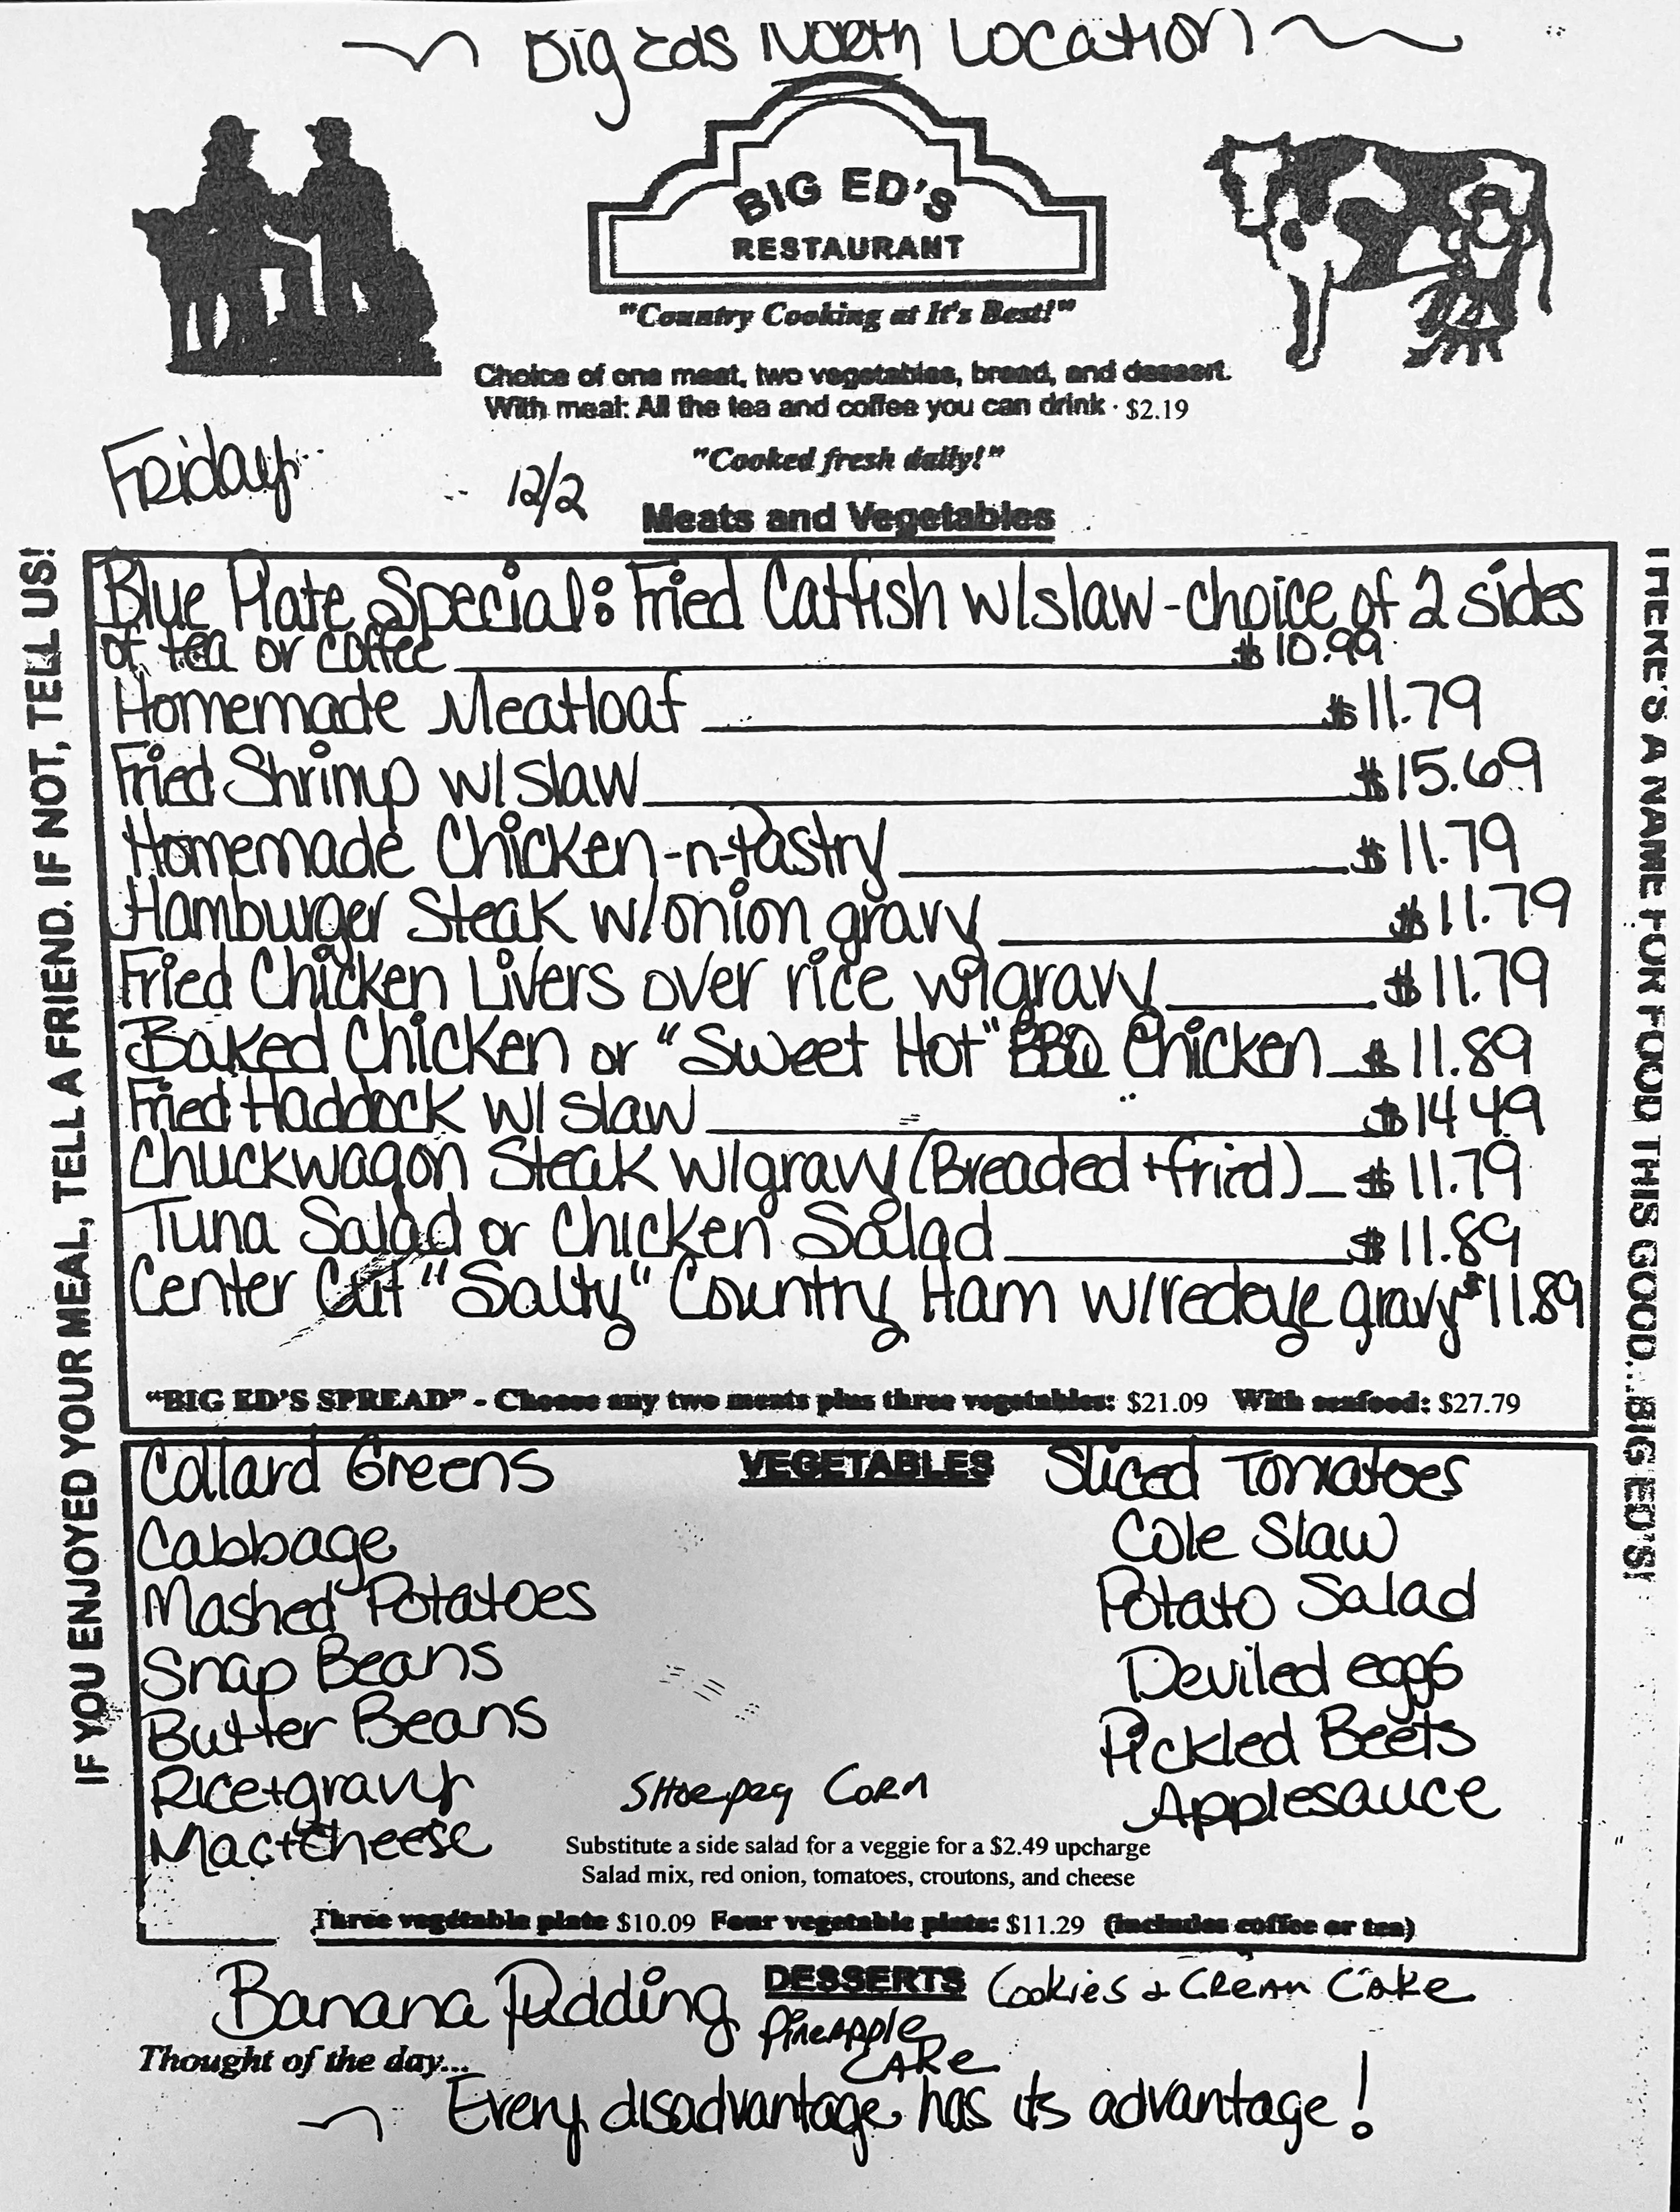 Big Eds North Location
BIG ED'S
RESTAURANT
"Country Cooking at It's Best!"
Choice of one meat, two vegetables, bread, and dessert.
With meal: All the tea and coffee you can drink · $2.19
"Cooked fresh daily!"
Friday 12/2
Meats and Vegetables
IF YOU ENJOYED YOUR MEAL, TELL A FRIEND. IF NOT, TELL US!
THERE'S A NAME FOR FOOD THIS GOOD....BIG ED'S!
Blue Plate Special: Fried Catfish w/slaw - choice of 2 sides
of tea or coffee $10.99
Homemade Meatloaf $11.79
Fried Shrimp w/slaw $15.69
Homemade Chicken-n-Pastry $11.79
Hamburger Steak w/onion gravy $11.79
Fried Chicken Livers over rice w/gravy $11.79
Baked Chicken or "Sweet Hot" BBQ Chicken $11.89
Fried Haddock w/ slaw $14.49
Chuckwagon Steak w/gravy (Breaded + fried) $11.79
Tuna Salad or Chicken Salad $11.89
Center Cut "Salty" Country Ham w/redeye gravy $11.89
"BIG ED'S SPREAD" - Choose any two meats plus three vegetables: $21.09 With seafood: $27.79
VEGETABLES
Collard Greens
Cabbage
Mashed Potatoes
Snap Beans
Butter Beans
Rice+gravy
Mac+Cheese
Shoepeg Corn
Sliced Tomatoes
Cole Slaw
Potato Salad
Deviled eggs
Pickled Beets
Applesauce
Substitute a side salad for a veggie for a $2.49 upcharge
Salad mix, red onion, tomatoes, croutons, and cheese
Three vegetable plate $10.09 Four vegetable plate: $11.29 (includes coffee or tea)
DESSERTS
Banana Pudding
Pineapple
Cake
Cookies & Cream Cake
Thought of the day...
Every disadvantage has its advantage!